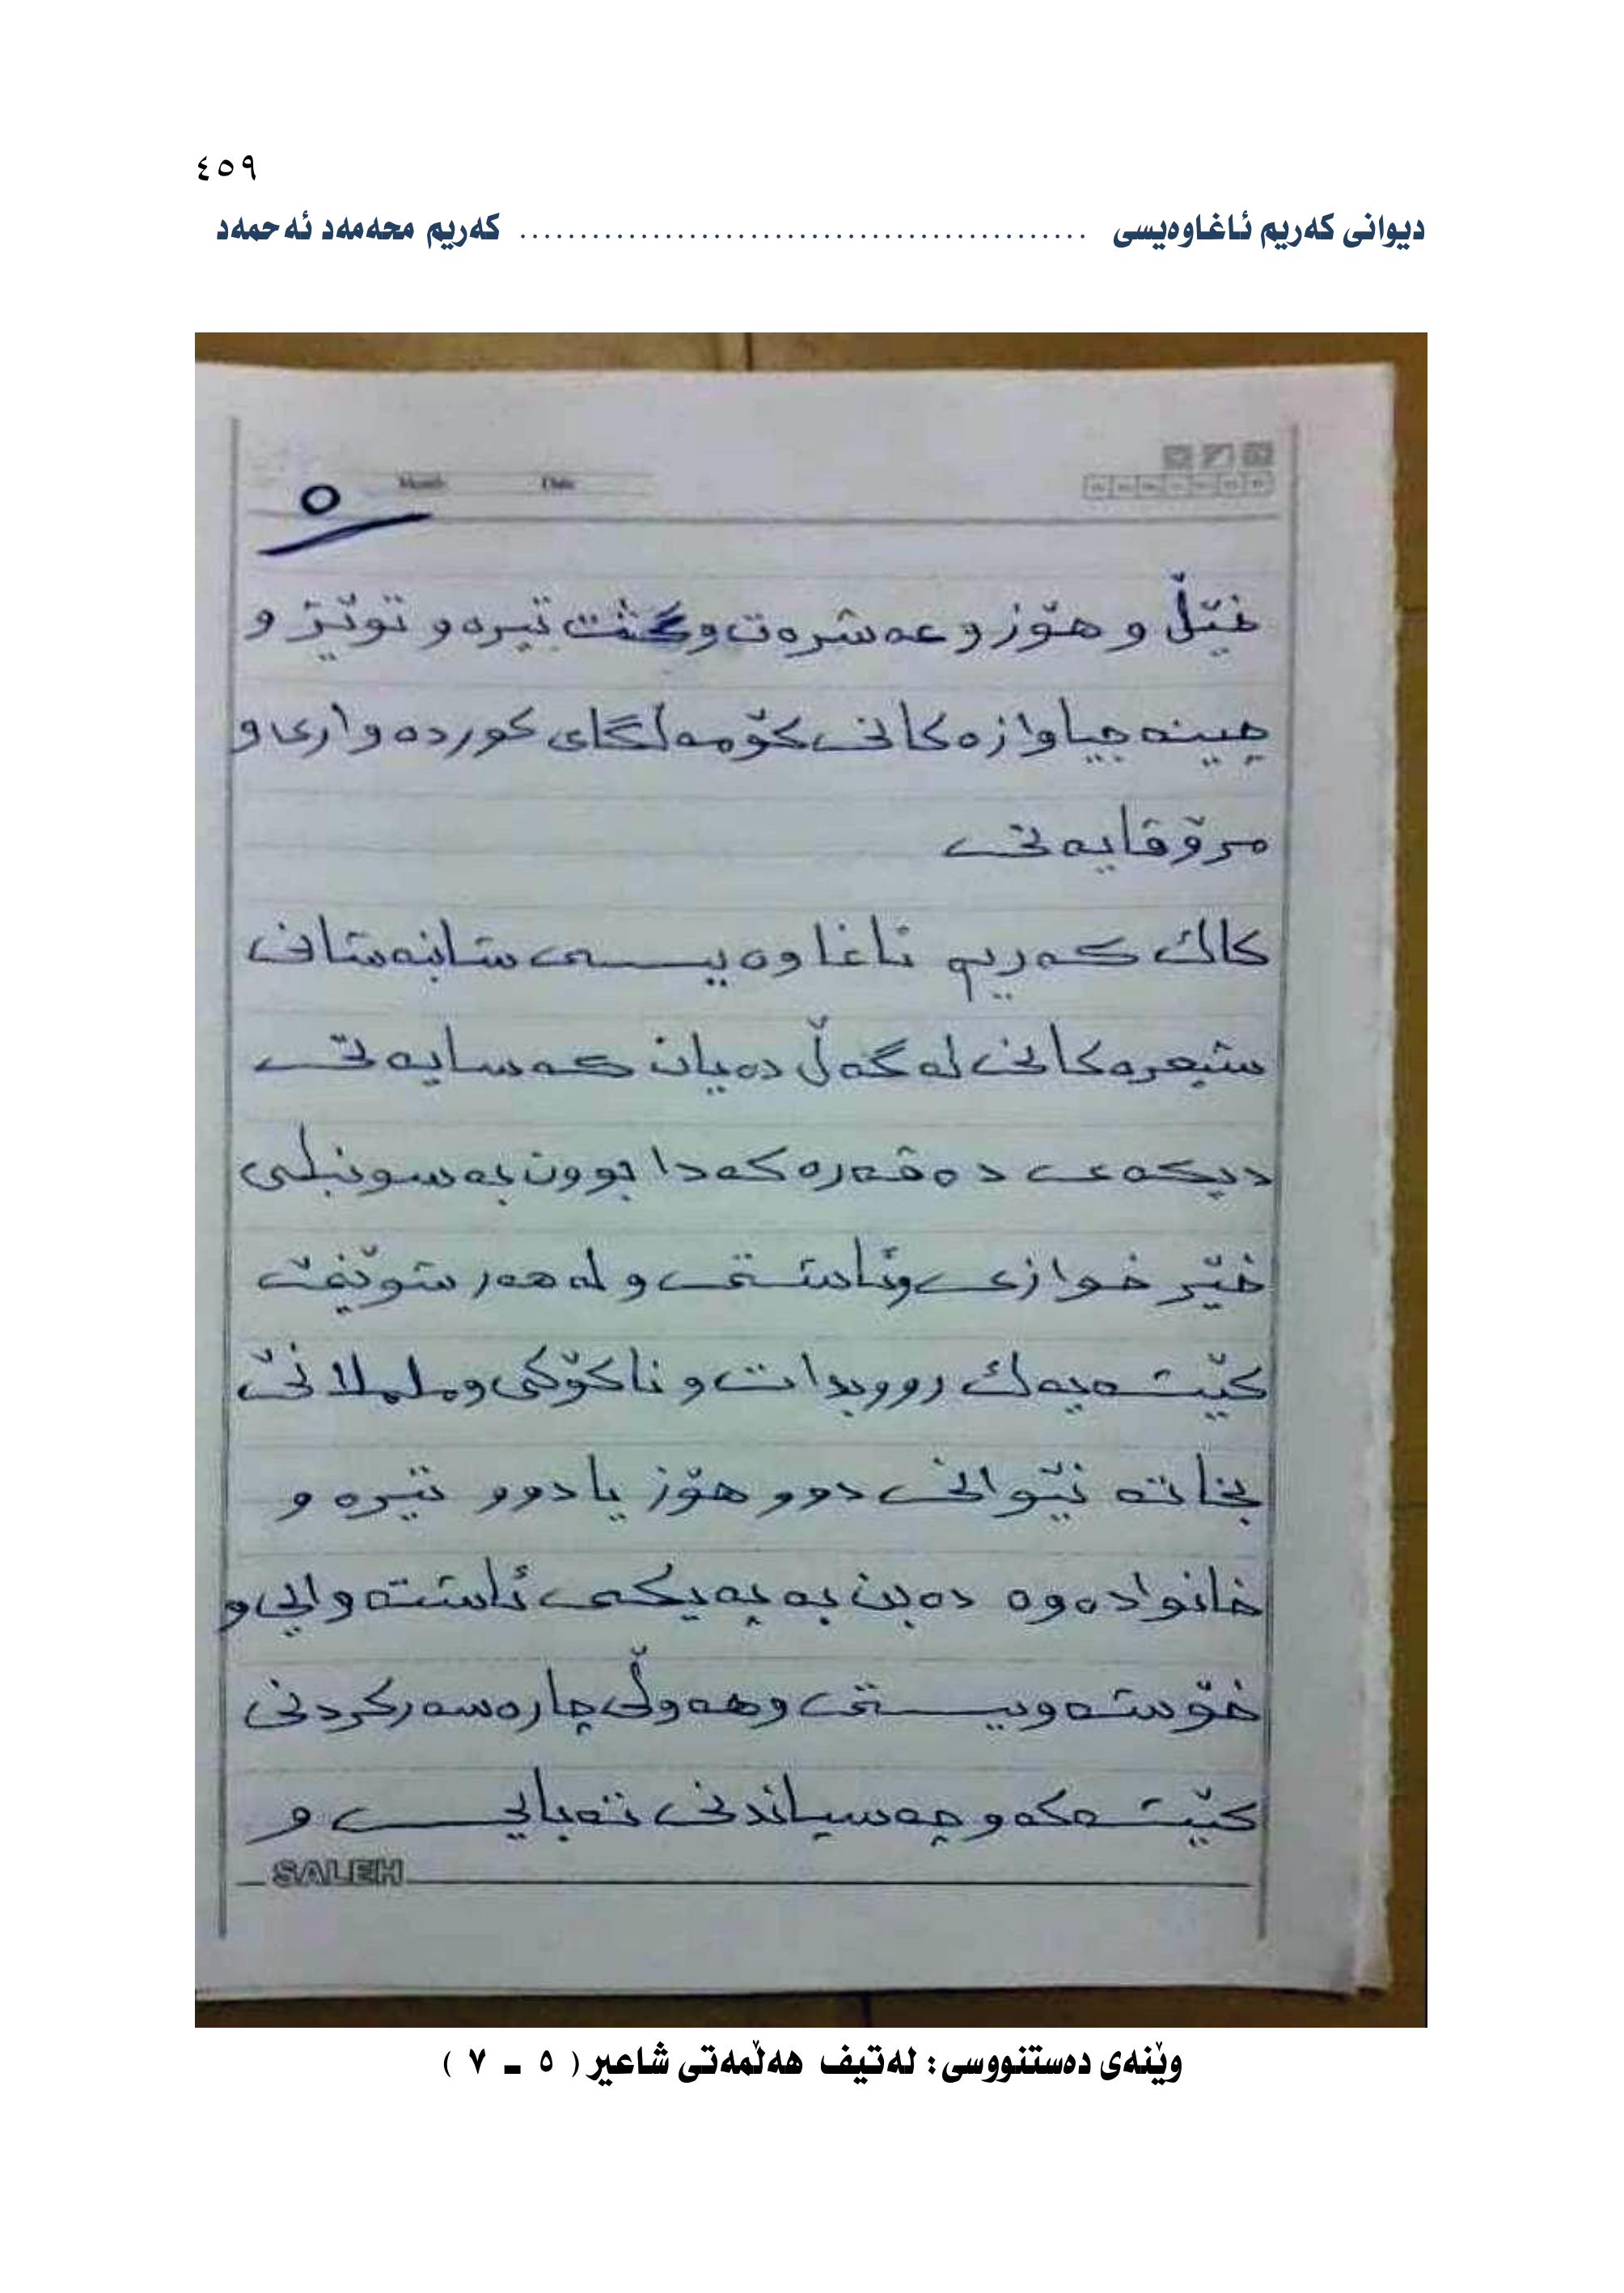 ٤٥٩
دیوانی کەریم ئاغاوەیسی ............................................... کەریم محەمەد ئەحمەد
Month Date
٥
خێڵ و هۆز و عەشرەت و گشت تیرە و توێژ و
چینە جیاوازەکانی کۆمەڵگای کوردەواری و
مرۆڤایەتی
کاك کەریم ئاغاوەیسی شانبەشانی
شیعرەکانی لەگەڵ دەیان کەسایەتی
دیکەی دەڤەرەکەدا بوون بە سونبلی
خێر خوازی و ئاشتی و لە هەر شوێنێ
کێشەیەك رووبدات و ناکۆکی و ململانێ
بخاتە نێوانی دوو هۆز یا دوو تیرە و
خانوادەوە دەبن بە پەیکی ئاشتەوایی و
خۆشەویستی و هەوڵی چارەسەرکردنی
کێشەکە و چەسپاندنی تەبایی و
SALEH
وێنەی دەستنووسی: لەتیف هەڵمەتی شاعیر ( ٥ ـ ٧ )